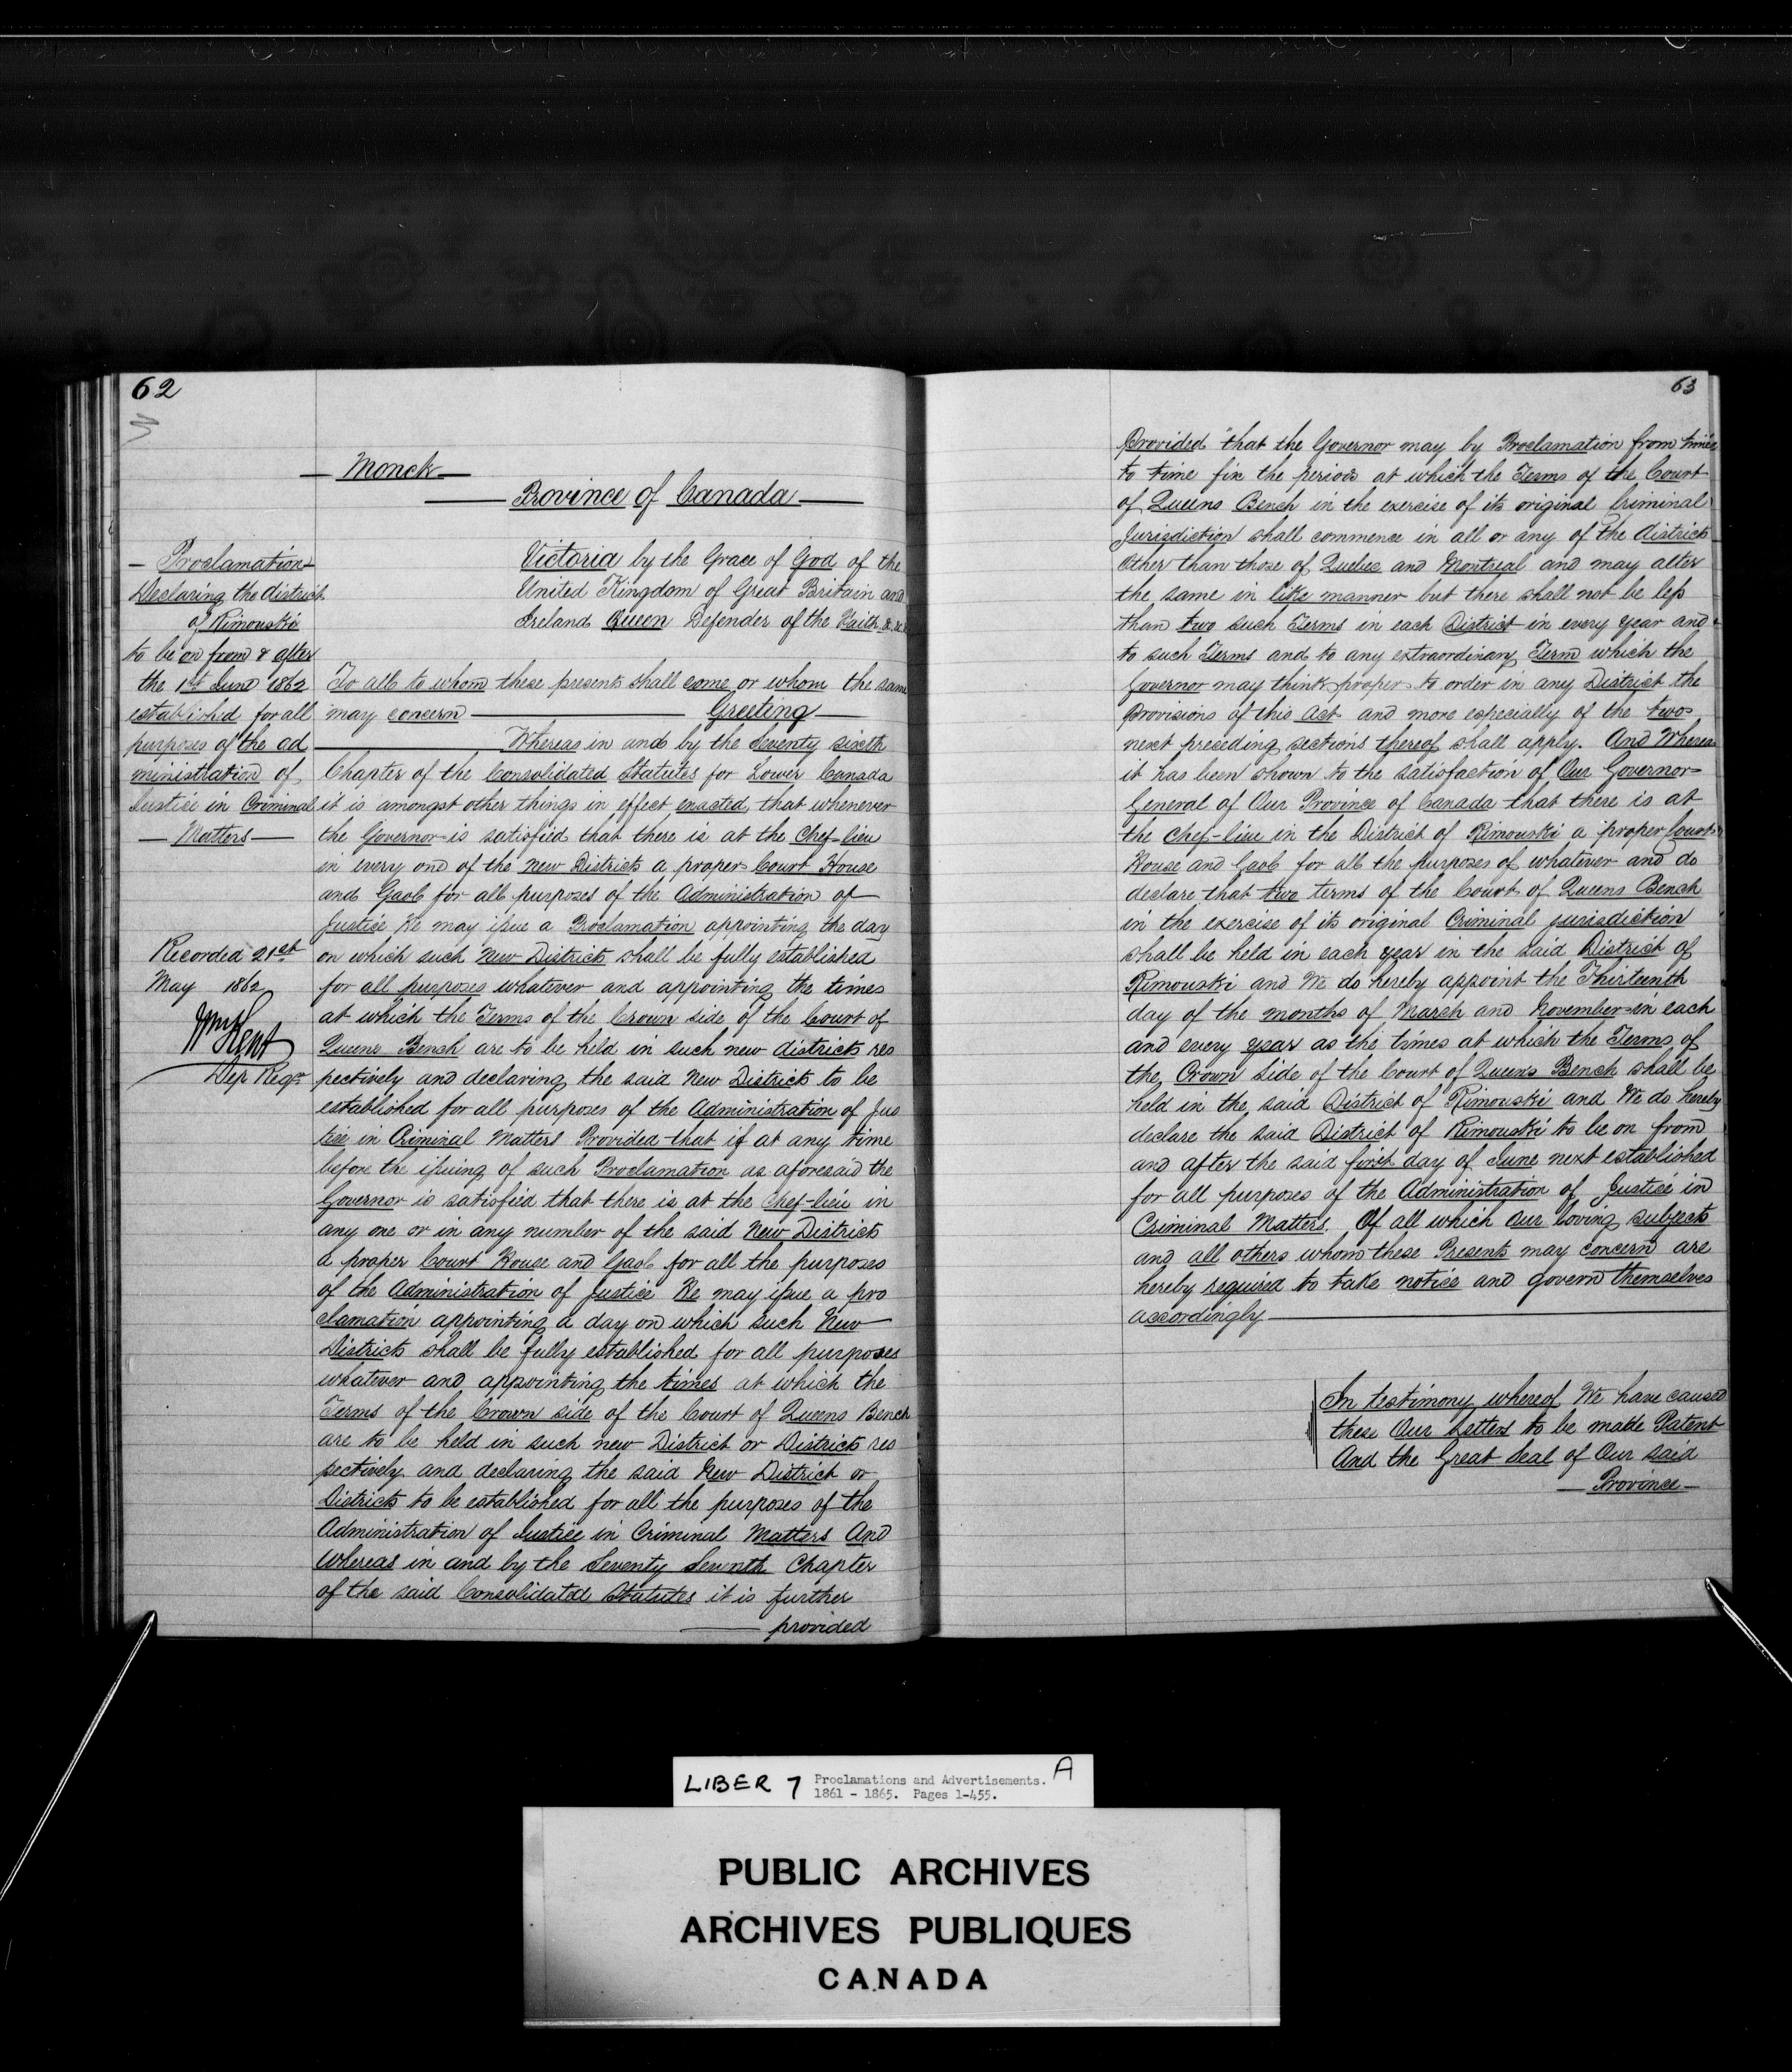 62
Monck
Province of Canada
Proclamation
Declaring the district
of Rimouski
to be on from & after
the 1st June 1862
established for all
purposes of the ad
ministration of
Justice in Criminal
Matters
Recorded 21st
May 1862
Wm Kent
Dep Regr
Victoria by the Grace of God of the
United Kingdom of Great Britain and
Ireland Queen Defender of the Faith &c &c
To all to whom these presents shall come or whom the same
may concern Greeting
Whereas in and by the Seventy sixth
Chapter of the Consolidated Statutes for Lower Canada
it is amongst other things in effect enacted, that whenever
the Governor is satisfied that there is at the Chef-lieu
in every one of the new Districts a proper Court House
and Gaol for all purposes of the Administration of
Justice He may issue a Proclamation appointing the day
on which such New Districts shall be fully established
for all purposes whatever and appointing the times
at which the Terms of the Crown side of the Court of
Queens Bench are to be held in such new districts res
pectively and declaring the said New Districts to be
established for all purposes of the Administration of Jus
tice in Criminal Matters Provided that if at any time
before the issuing of such Proclamation as aforesaid the
Governor is satisfied that there is at the Chef-lieu in
any one or in any number of the said New Districts
a proper Court House and Gaol for all the purposes
of the Administration of Justice He may issue a pro
clamation appointing a day on which such New
Districts shall be fully established for all purposes
whatever and appointing the times at which the
Terms of the Crown side of the Court of Queens Bench
are to be held in such new District or Districts res
pectively and declaring the said New District or
Districts to be established for all the purposes of the
Administration of Justice in Criminal Matters And
Whereas in and by the Seventy Seventh Chapter
of the said Consolidated Statutes it is further
provided
63
Provided "that the Governor may by Proclamation from time
to time fix the periods at which the Terms of the Court
of Queens Bench in the exercise of its original Criminal
Jurisdiction shall commence in all or any of the districts
Other than those of Quebec and Montreal and may alter
the same in like manner but there shall not be less
than two such Terms in each District in every year and
to such Terms and to any extraordinary Term which the
Governor may think proper to order in any District the
Provisions of this Act and more especially of the two
next preceding sections thereof shall apply. And Whereas
it has been shown to the satisfaction of Our Governor
General of Our Province of Canada that there is at
the Chef-lieu in the District of Rimouski a proper Court
House and Gaol for all the purposes of whatever and do
declare that two terms of the Court of Queens Bench
in the exercise of its original Criminal jurisdiction
shall be held in each year in the said District of
Rimouski and We do hereby appoint the Thirteenth
day of the months of March and November in each
and every year as the times at which the Terms of
the Crown Side of the Court of Queens Bench shall be
held in the said District of Rimouski and We do hereby
declare the said District of Rimouski to be on from
and after the said first day of June next established
for all purposes of the Administration of Justice in
Criminal Matters. Of all which Our loving subjects
and all others whom these Presents may concern are
hereby required to take notice and govern themselves
accordingly
In testimony whereof We have caused
these Our Letters to be made Patent
And the Great Seal of Our said
Province
LIBER 7 Proclamations and Advertisements. A
1861 - 1865. Pages 1-455.
PUBLIC ARCHIVES
ARCHIVES PUBLIQUES
CANADA